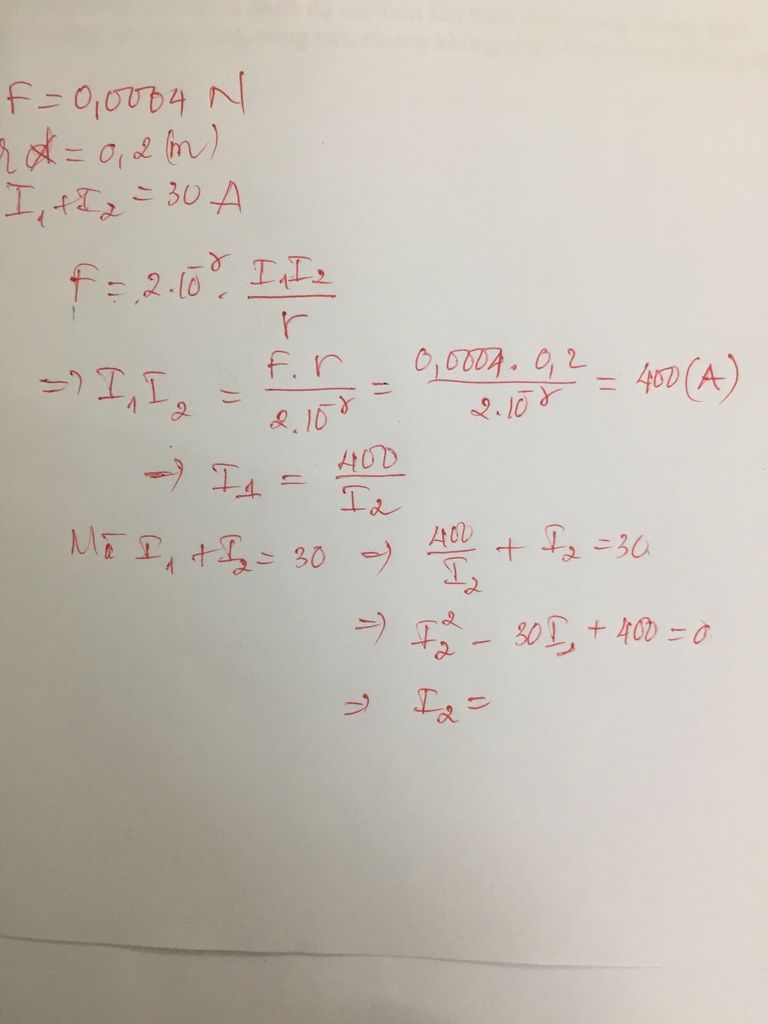 F = 0,0004 N
r = 0,2 (m)
I₁ + I₂ = 30 A
F = 2.10⁻⁷ . I₁I₂ / r
=> I₁I₂ = F.r / 2.10⁻⁷ = 0,0004 . 0,2 / 2.10⁻⁷ = 400 (A)
→ I₁ = 400 / I₂
Mà I₁ + I₂ = 30 => 400 / I₂ + I₂ = 30
=> I₂² - 30I₂ + 400 = 0
=> I₂ =